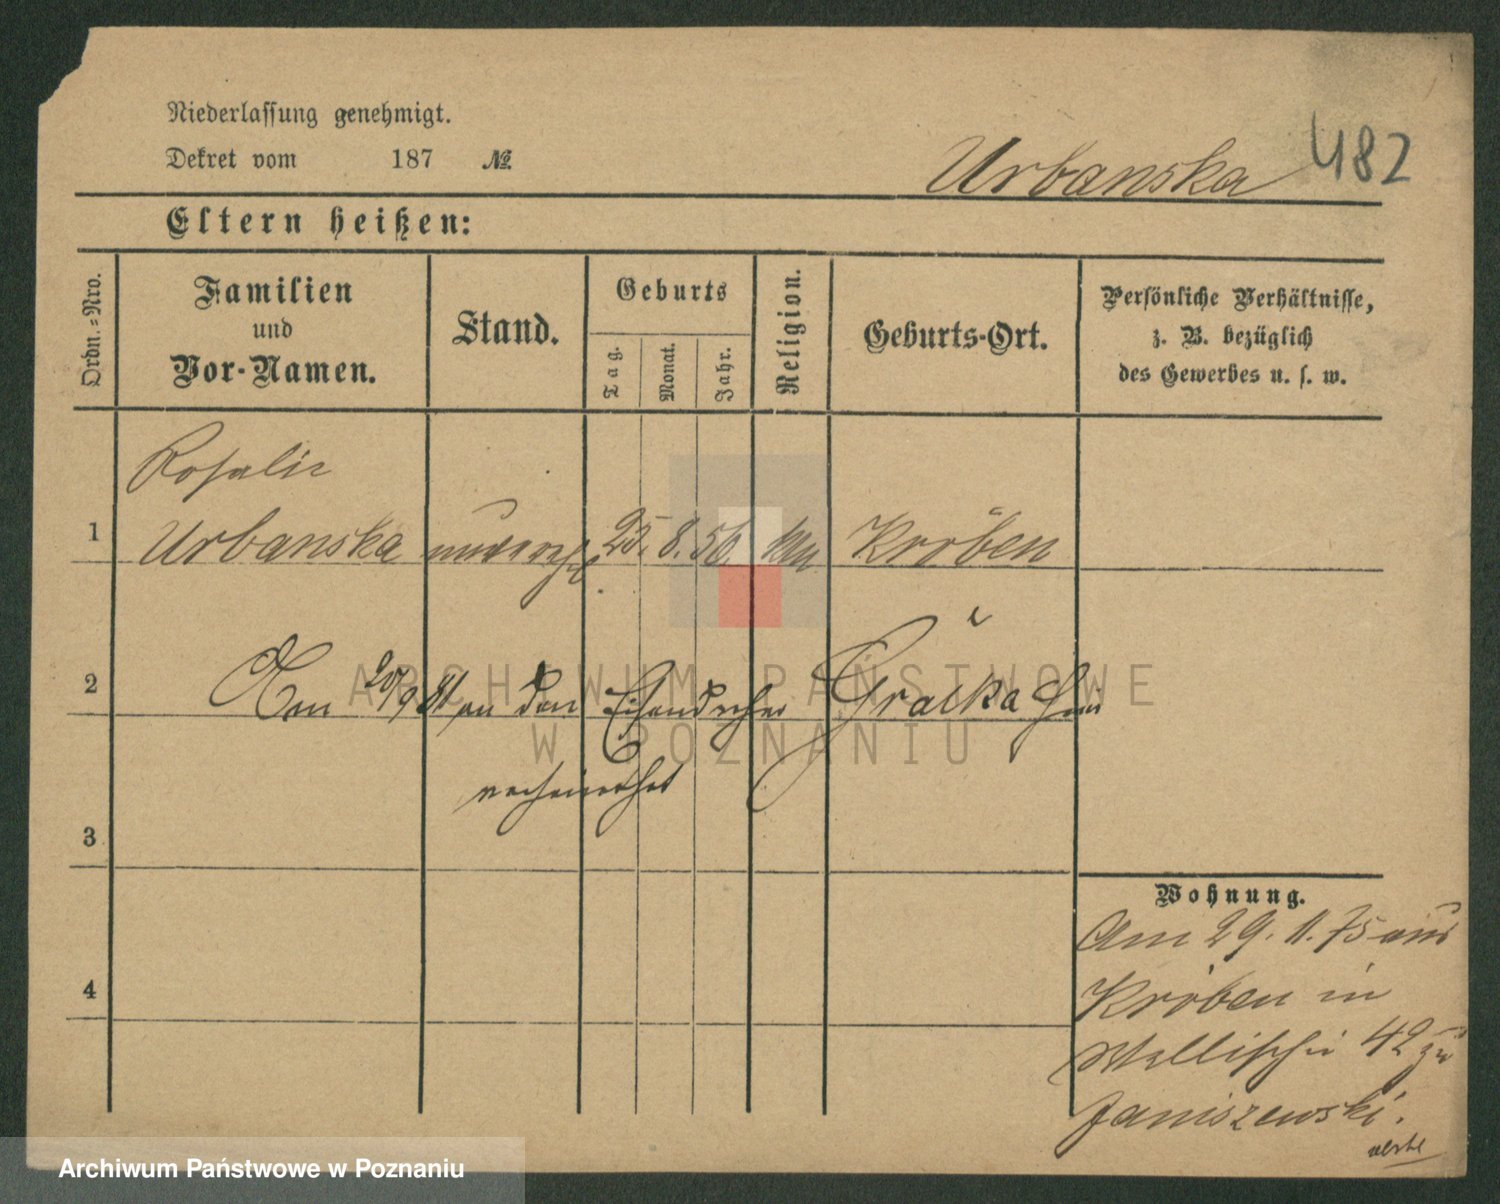 Niederlassung genehmigt.
Dekret vom 187 №
Urbanska 482
Eltern heißen:
Ordn.-Nro.
Familien
und
Vor-Namen.
Stand.
Geburts
Tag.
Monat.
Jahr.
Religion.
Geburts-Ort.
Persönliche Verhältnisse,
z. B. bezüglich
des Gewerbes u. s. w.
Rosalie
1 Urbanska unverehl 25. 8. 56. kth Kröben
2 Am 20/9 81 an den Gralka
verheirathet
3
4
Wohnung.
Am 29. 11. 75 aus
Kröben in
Wallischei 42 zu
Janiszewski.
ARCHIWUM PAŃSTWOWE
W POZNANIU
Archiwum Państwowe w Poznaniu